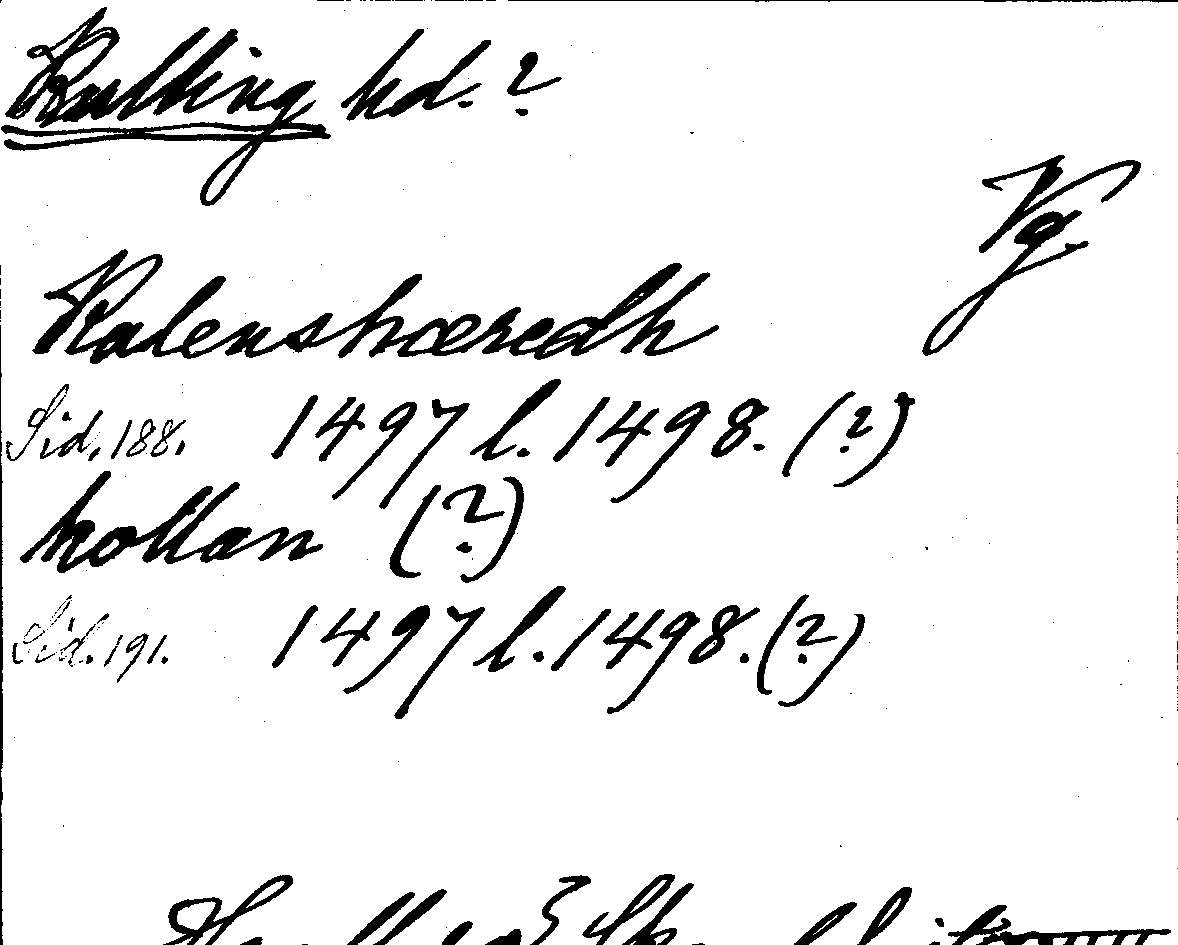 Kulling hd. ?
Vg.
Kalenshæredh
Sid. 188. 1497 l. 1498. (?)
kollan (?)
Sid. 191. 1497 l. 1498. (?)